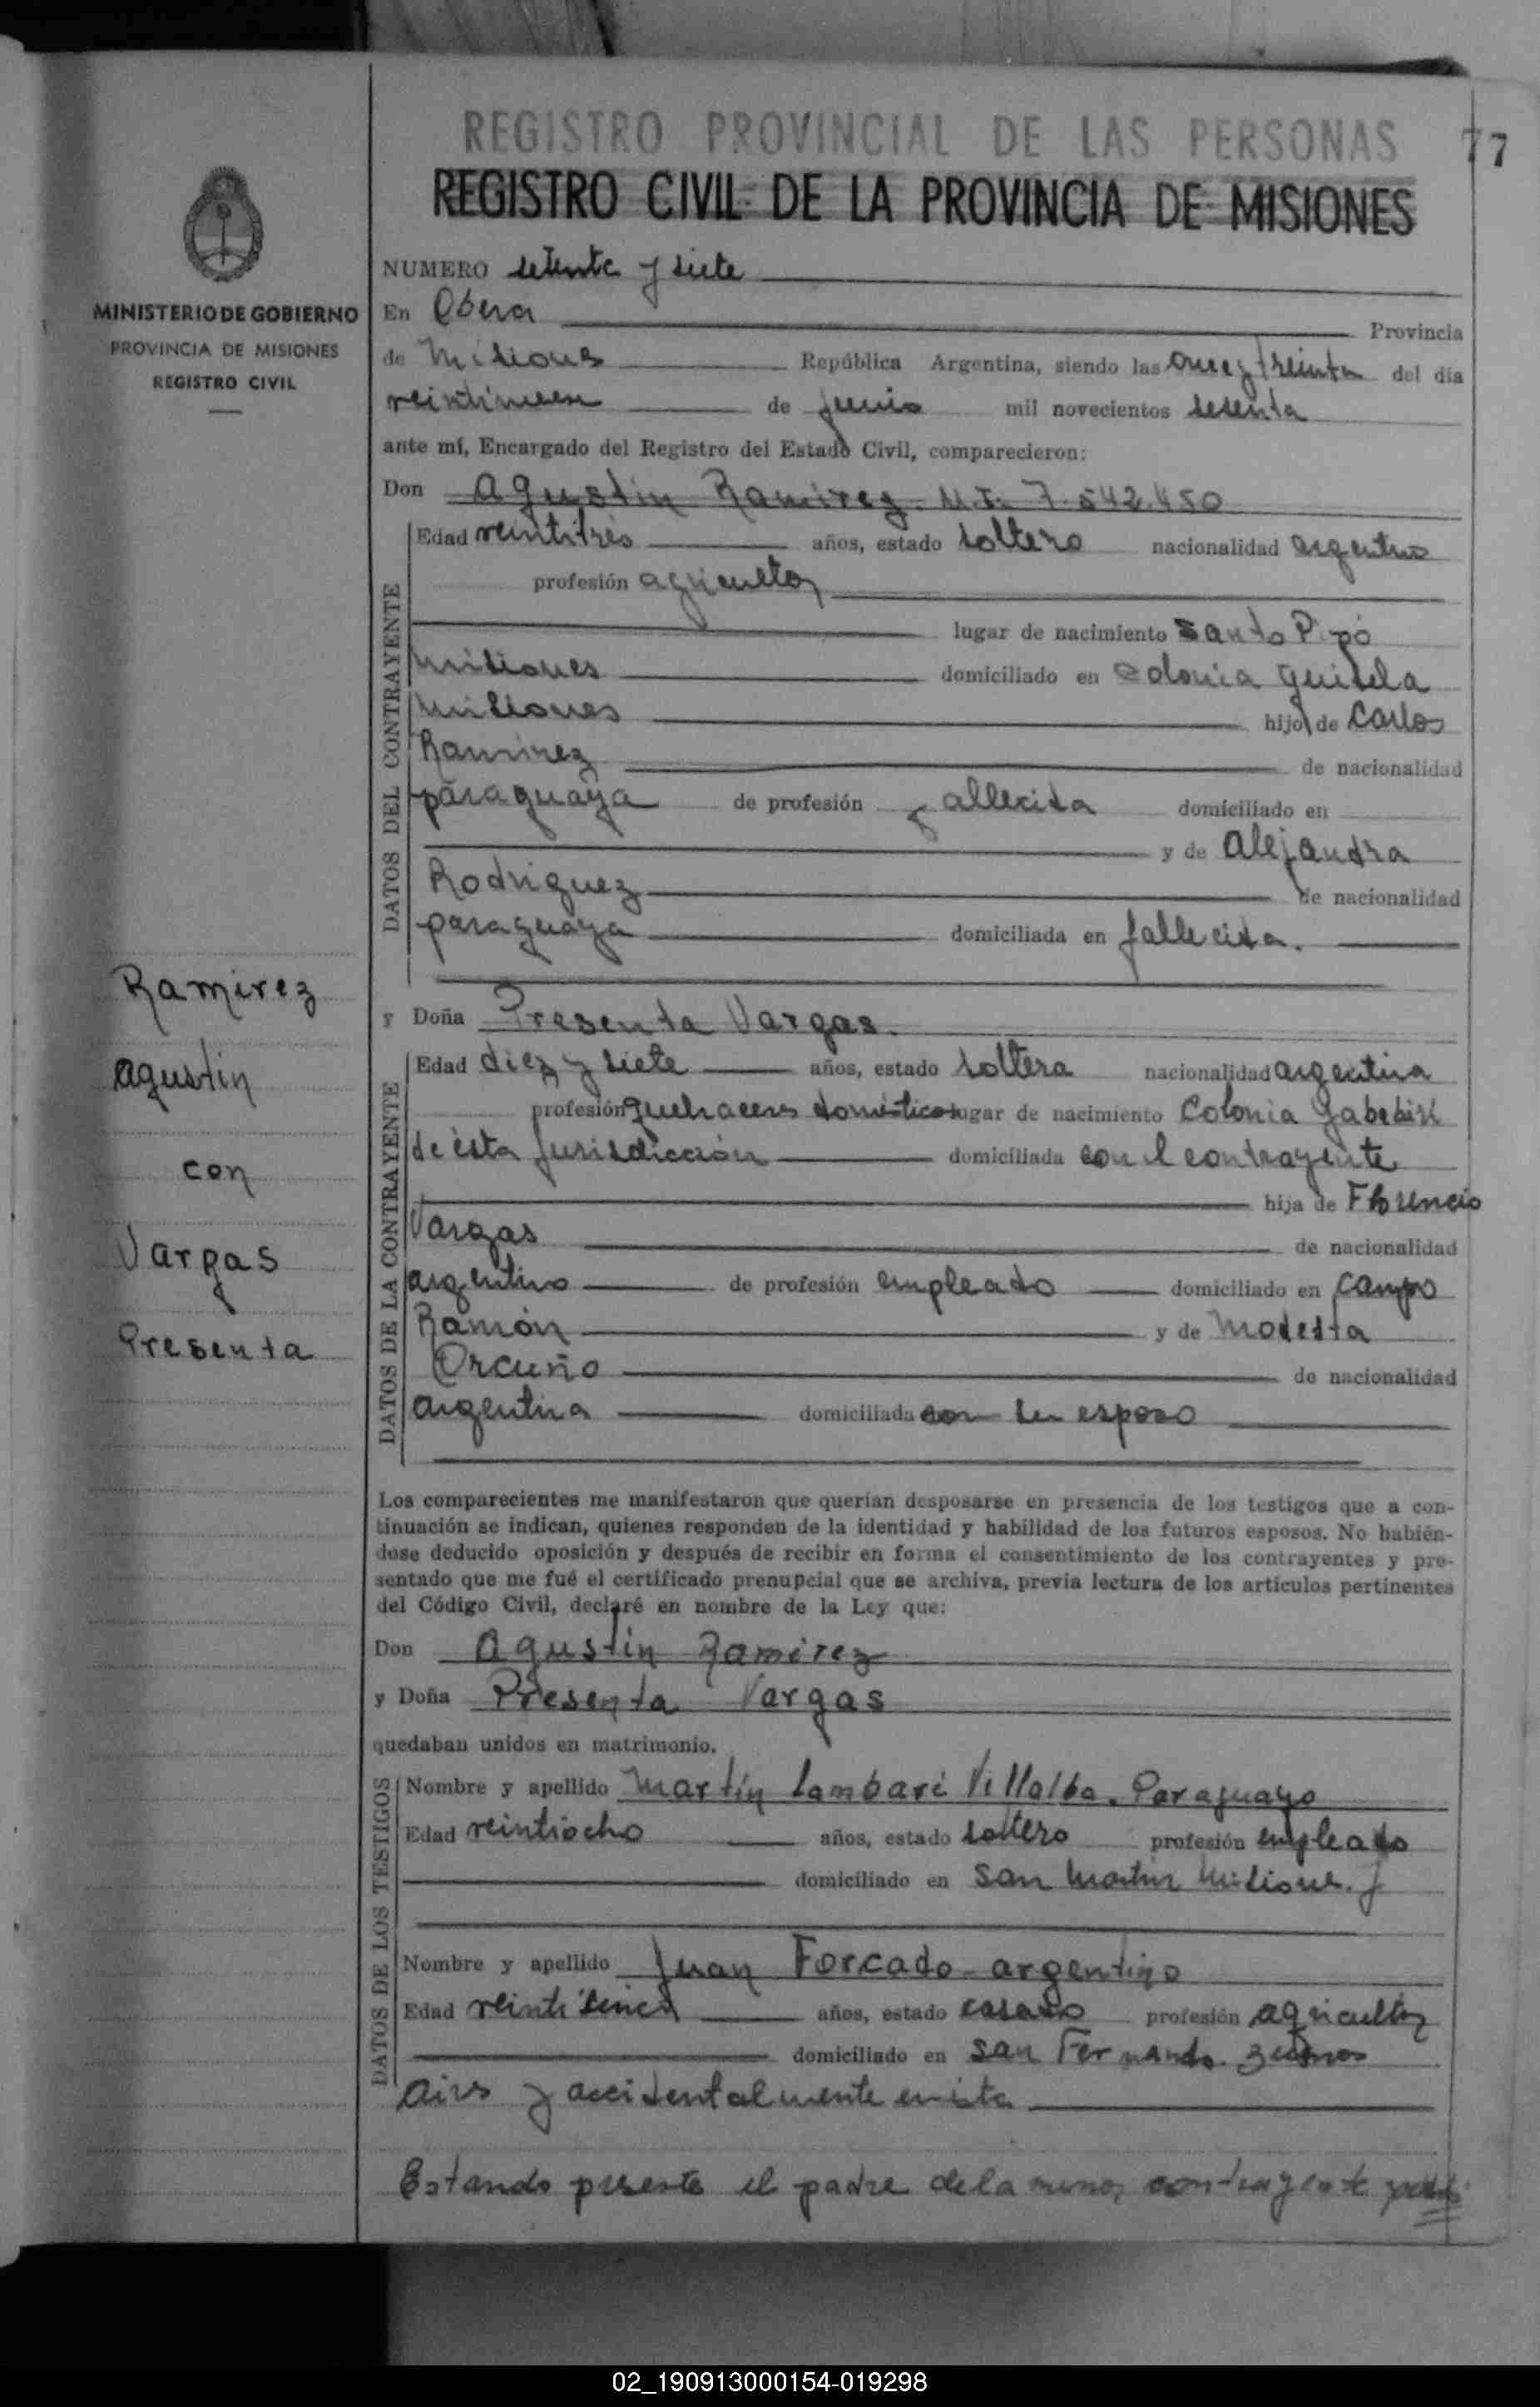 REGISTRO PROVINCIAL DE LAS PERSONAS
77
REGISTRO CIVIL DE LA PROVINCIA DE MISIONES
MINISTERIO DE GOBIERNO
PROVINCIA DE MISIONES
REGISTRO CIVIL
NUMERO setenta y siete
En Obera Provincia
de Misiones República Argentina, siendo las once y treinta del día
de junio mil novecientos sesenta
ante mí, Encargado del Registro del Estado Civil, comparecieron:
Don Agustin Ramirez. M.I. 7.542.450
Edad veintitrés años, estado soltero nacionalidad argentino
profesión agricultor
lugar de nacimiento Santo Pipó
Misiones domiciliado en Colonia Guisela
Misiones hijo de Carlos
Ramirez de nacionalidad
paraguaya de profesión fallecida domiciliado en
y de Alejandra
Rodriguez de nacionalidad
paraguaya domiciliada en fallecida.
DATOS DEL CONTRAYENTE
y Doña Presenta Vargas.
Edad diez y siete años, estado soltera nacionalidad argentina
profesión quehaceres domésticos lugar de nacimiento Colonia Yabebirí
de ésta jurisdicción domiciliada con el contrayente
hija de Florencio
Vargas de nacionalidad
argentino de profesión empleado domiciliado en Campo
Ramón y de Modesta
Orcuño de nacionalidad
argentina domiciliada con su esposo
DATOS DE LA CONTRAYENTE
Ramirez
Agustin
con
Vargas
Presenta
Los comparecientes me manifestaron que querían desposarse en presencia de los testigos que a con-
tinuación se indican, quienes responden de la identidad y habilidad de los futuros esposos. No habién-
dose deducido oposición y después de recibir en forma el consentimiento de los contrayentes y pre-
sentado que me fué el certificado prenupcial que se archiva, previa lectura de los artículos pertinentes
del Código Civil, declaré en nombre de la Ley que:
Don Agustin Ramirez
y Doña Presenta Vargas
quedaban unidos en matrimonio.
Nombre y apellido Martín Lambaré Villalba. Paraguayo
Edad veintiocho años, estado soltero profesión empleado
domiciliado en San Martin Misiones. y
Nombre y apellido Juan Forcado argentino
Edad veinticinco años, estado casado profesión agricultor
domiciliado en San Fernando. Buenos
Aires y accidentalmente en ésta
DATOS DE LOS TESTIGOS
Estando presente el padre de la menor contrayente
02_190913000154-019298